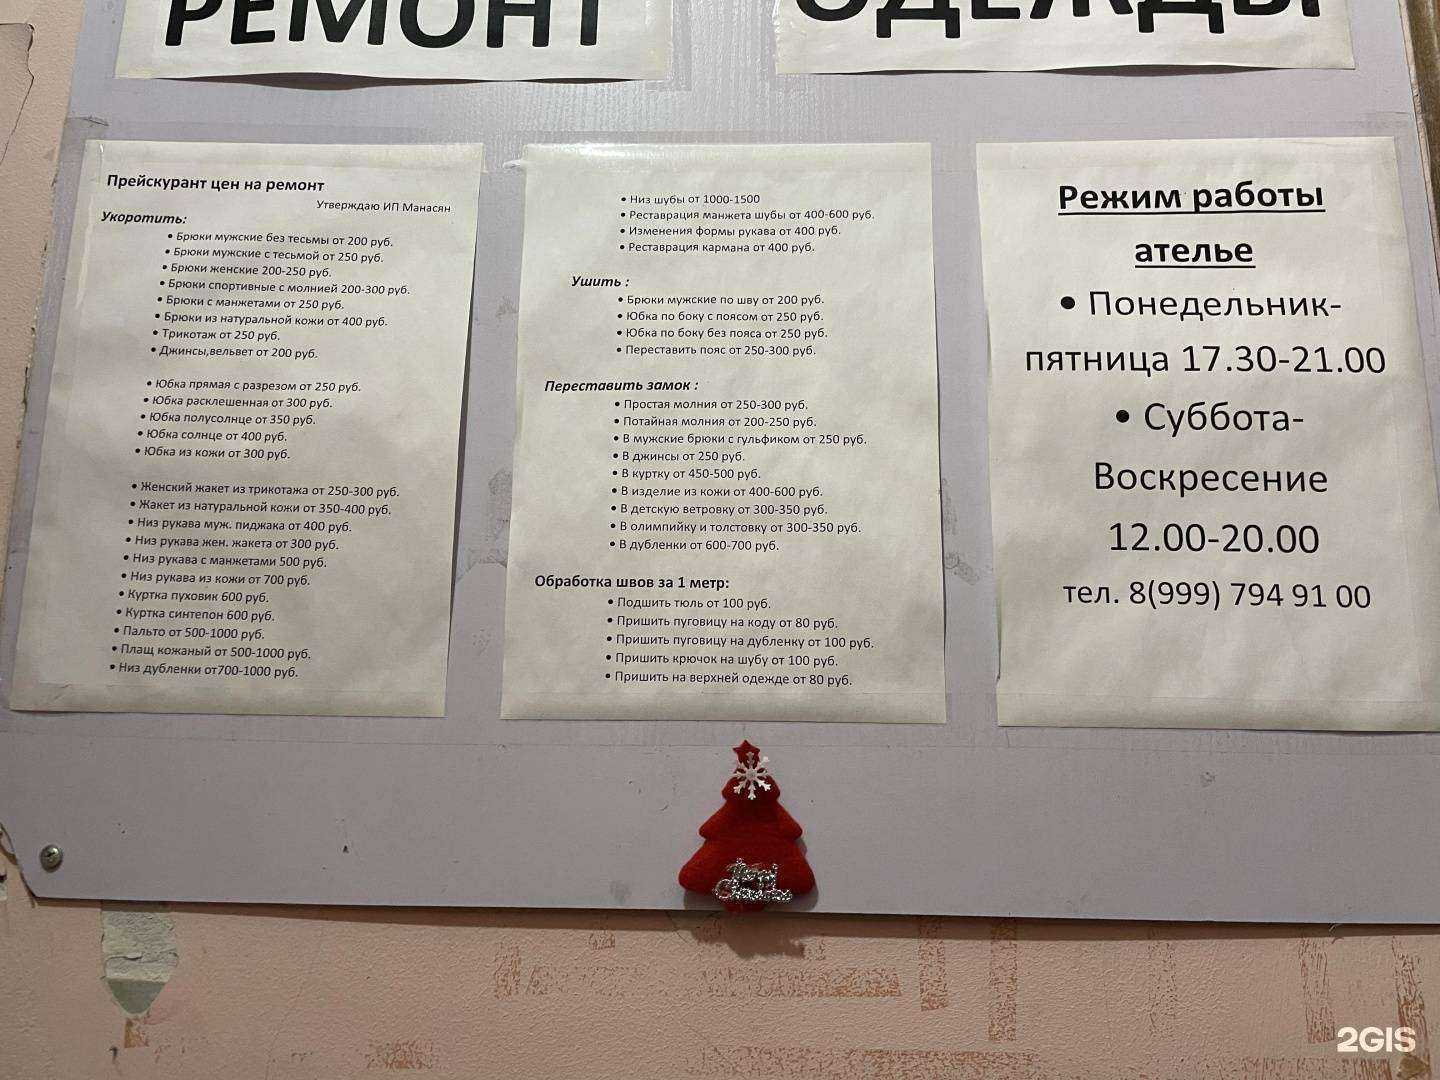 РЕМОНТ ОДЕЖДЫ
Прейскурант цен на ремонт
Утверждаю ИП Манасян
Укоротить:
• Брюки мужские без тесьмы от 200 руб.
• Брюки мужские с тесьмой от 250 руб.
• Брюки женские 200-250 руб.
• Брюки спортивные с молнией 200-300 руб.
• Брюки с манжетами от 250 руб.
• Брюки из натуральной кожи от 400 руб.
• Трикотаж от 250 руб.
• Джинсы,вельвет от 200 руб.
• Юбка прямая с разрезом от 250 руб.
• Юбка расклешенная от 300 руб.
• Юбка полусолнце от 350 руб.
• Юбка солнце от 400 руб.
• Юбка из кожи от 300 руб.
• Женский жакет из трикотажа от 250-300 руб.
• Жакет из натуральной кожи от 350-400 руб.
• Низ рукава муж. пиджака от 400 руб.
• Низ рукава жен. жакета от 300 руб.
• Низ рукава с манжетами 500 руб.
• Низ рукава из кожи от 700 руб.
• Куртка пуховик 600 руб.
• Куртка синтепон 600 руб.
• Пальто от 500-1000 руб.
• Плащ кожаный от 500-1000 руб.
• Низ дубленки от700-1000 руб.
• Низ шубы от 1000-1500
• Реставрация манжета шубы от 400-600 руб.
• Изменения формы рукава от 400 руб.
• Реставрация кармана от 400 руб.
Ушить :
• Брюки мужские по шву от 200 руб.
• Юбка по боку с поясом от 250 руб.
• Юбка по боку без пояса от 250 руб.
• Переставить пояс от 250-300 руб.
Переставить замок :
• Простая молния от 250-300 руб.
• Потайная молния от 200-250 руб.
• В мужские брюки с гульфиком от 250 руб.
• В джинсы от 250 руб.
• В куртку от 450-500 руб.
• В изделие из кожи от 400-600 руб.
• В детскую ветровку от 300-350 руб.
• В олимпийку и толстовку от 300-350 руб.
• В дубленки от 600-700 руб.
Обработка швов за 1 метр:
• Подшить тюль от 100 руб.
• Пришить пуговицу на коду от 80 руб.
• Пришить пуговицу на дубленку от 100 руб.
• Пришить крючок на шубу от 100 руб.
• Пришить на верхней одежде от 80 руб.
Режим работы
ателье
• Понедельник-
пятница 17.30-21.00
• Суббота-
Воскресение
12.00-20.00
тел. 8(999) 794 91 00
Merry
Christmas
2GIS